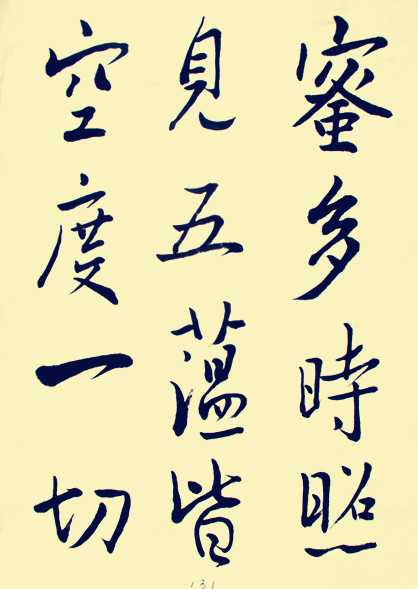 蜜多時照
見五蘊皆
空度一切
131